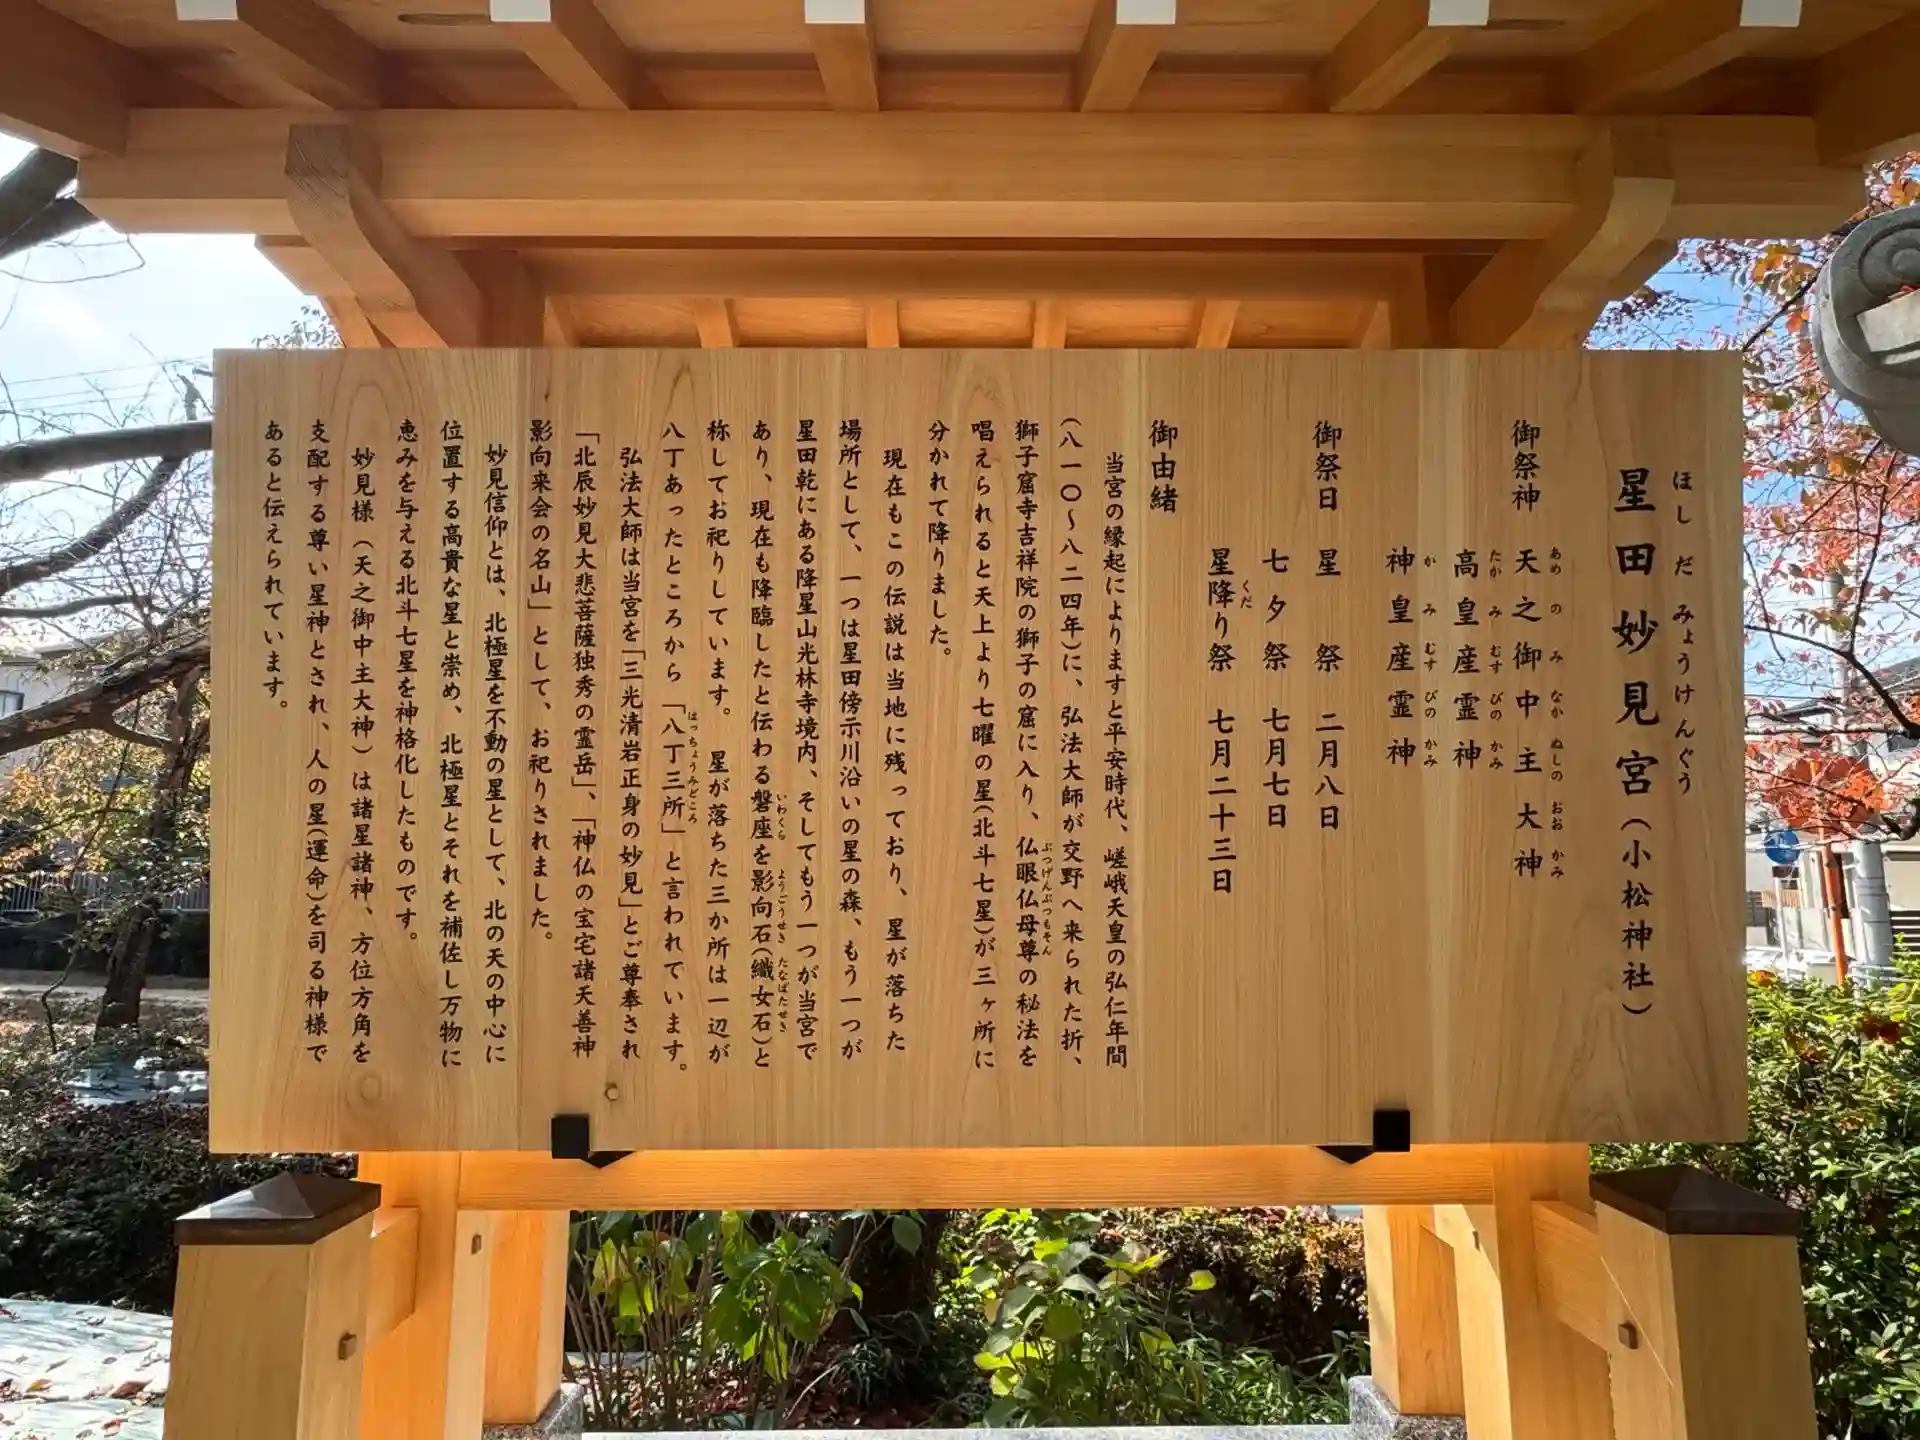 星田妙見宮（小松神社）
ほしだみょうけんぐう
御祭神　天之御中主大神
あめのみなかぬしのおおかみ
高皇産霊神
たかみむすびのかみ
神皇産霊神
かみむすびのかみ
御祭日　星　祭　二月八日
七夕祭　七月七日
星降り祭　七月二十三日
くだ
御由緒
当宮の縁起によりますと平安時代、嵯峨天皇の弘仁年間
（八一〇～八二四年）に、弘法大師が交野へ来られた折、
獅子窟寺吉祥院の獅子の窟に入り、仏眼仏母尊の秘法を
ぶつげんぶつもそん
唱えられると天上より七曜の星（北斗七星）が三ヶ所に
分かれて降りました。
現在もこの伝説は当地に残っており、星が落ちた
場所として、一つは星田傍示川沿いの星の森、もう一つが
星田乾にある降星山光林寺境内、そしてもう一つが当宮で
あり、現在も降臨したと伝わる磐座を影向石（織女石）と
いわくら　ようごうせき　たなばたせき
称してお祀りしています。　星が落ちた三か所は一辺が
八丁あったところから「八丁三所」と言われています。
はっちょうみどころ
弘法大師は当宮を「三光清岩正身の妙見」とご尊奉され
「北辰妙見大悲菩薩独秀の霊岳」、「神仏の宝宅諸天善神
影向来会の名山」として、お祀りされました。
妙見信仰とは、北極星を不動の星として、北の天の中心に
位置する高貴な星と崇め、北極星とそれを補佐し万物に
恵みを与える北斗七星を神格化したものです。
妙見様（天之御中主大神）は諸星諸神、方位方角を
支配する尊い星神とされ、人の星（運命）を司る神様で
あると伝えられています。